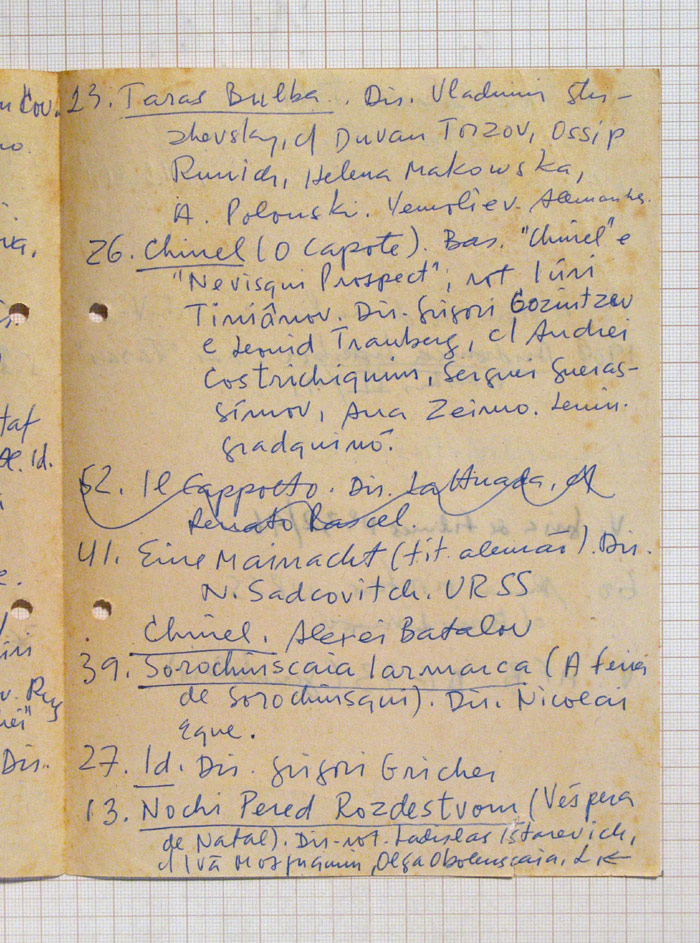 23. Taras Bulba. Dir. Vladimir Stri-
zhevsky, c/ Duvan Torzov, Ossip
Runich, Helena Makowska,
A. Polonski. Yermoliev. Alemanha.
26. Chinel (O Capote). Bas. "Chinel" e
"Nevisqui Prospect", rot Iúri
Tiniânov. Dir. Grigori Gozintzev
e Leonid Trauberg, c/ Andrei
Costrichiquin, Serguei Gueras-
símov, Ana Zeimo. Lenin-
gradquinô.
52. Il Cappotto. Dir. Lattuada, c/
Renato Rascel.
41. Eine Mainacht (tit. alemão). Dir.
N. Sadcovitch. URSS
Chinel. Alexei Batalov
39. Sorochinscaia Iarmarca (A feira
de Sorochinsqui). Dir. Nicolai
Eque.
27. Id. Dir. Grigori Gricher
13. Nochi Pered Rozdestvom (Véspera
de Natal). Dir-rot. Ladislas Starevich,
c/ Ivã Mosjuquin, Olga Obolenscaia, L.
Cov.
taf
Id.
Dir.